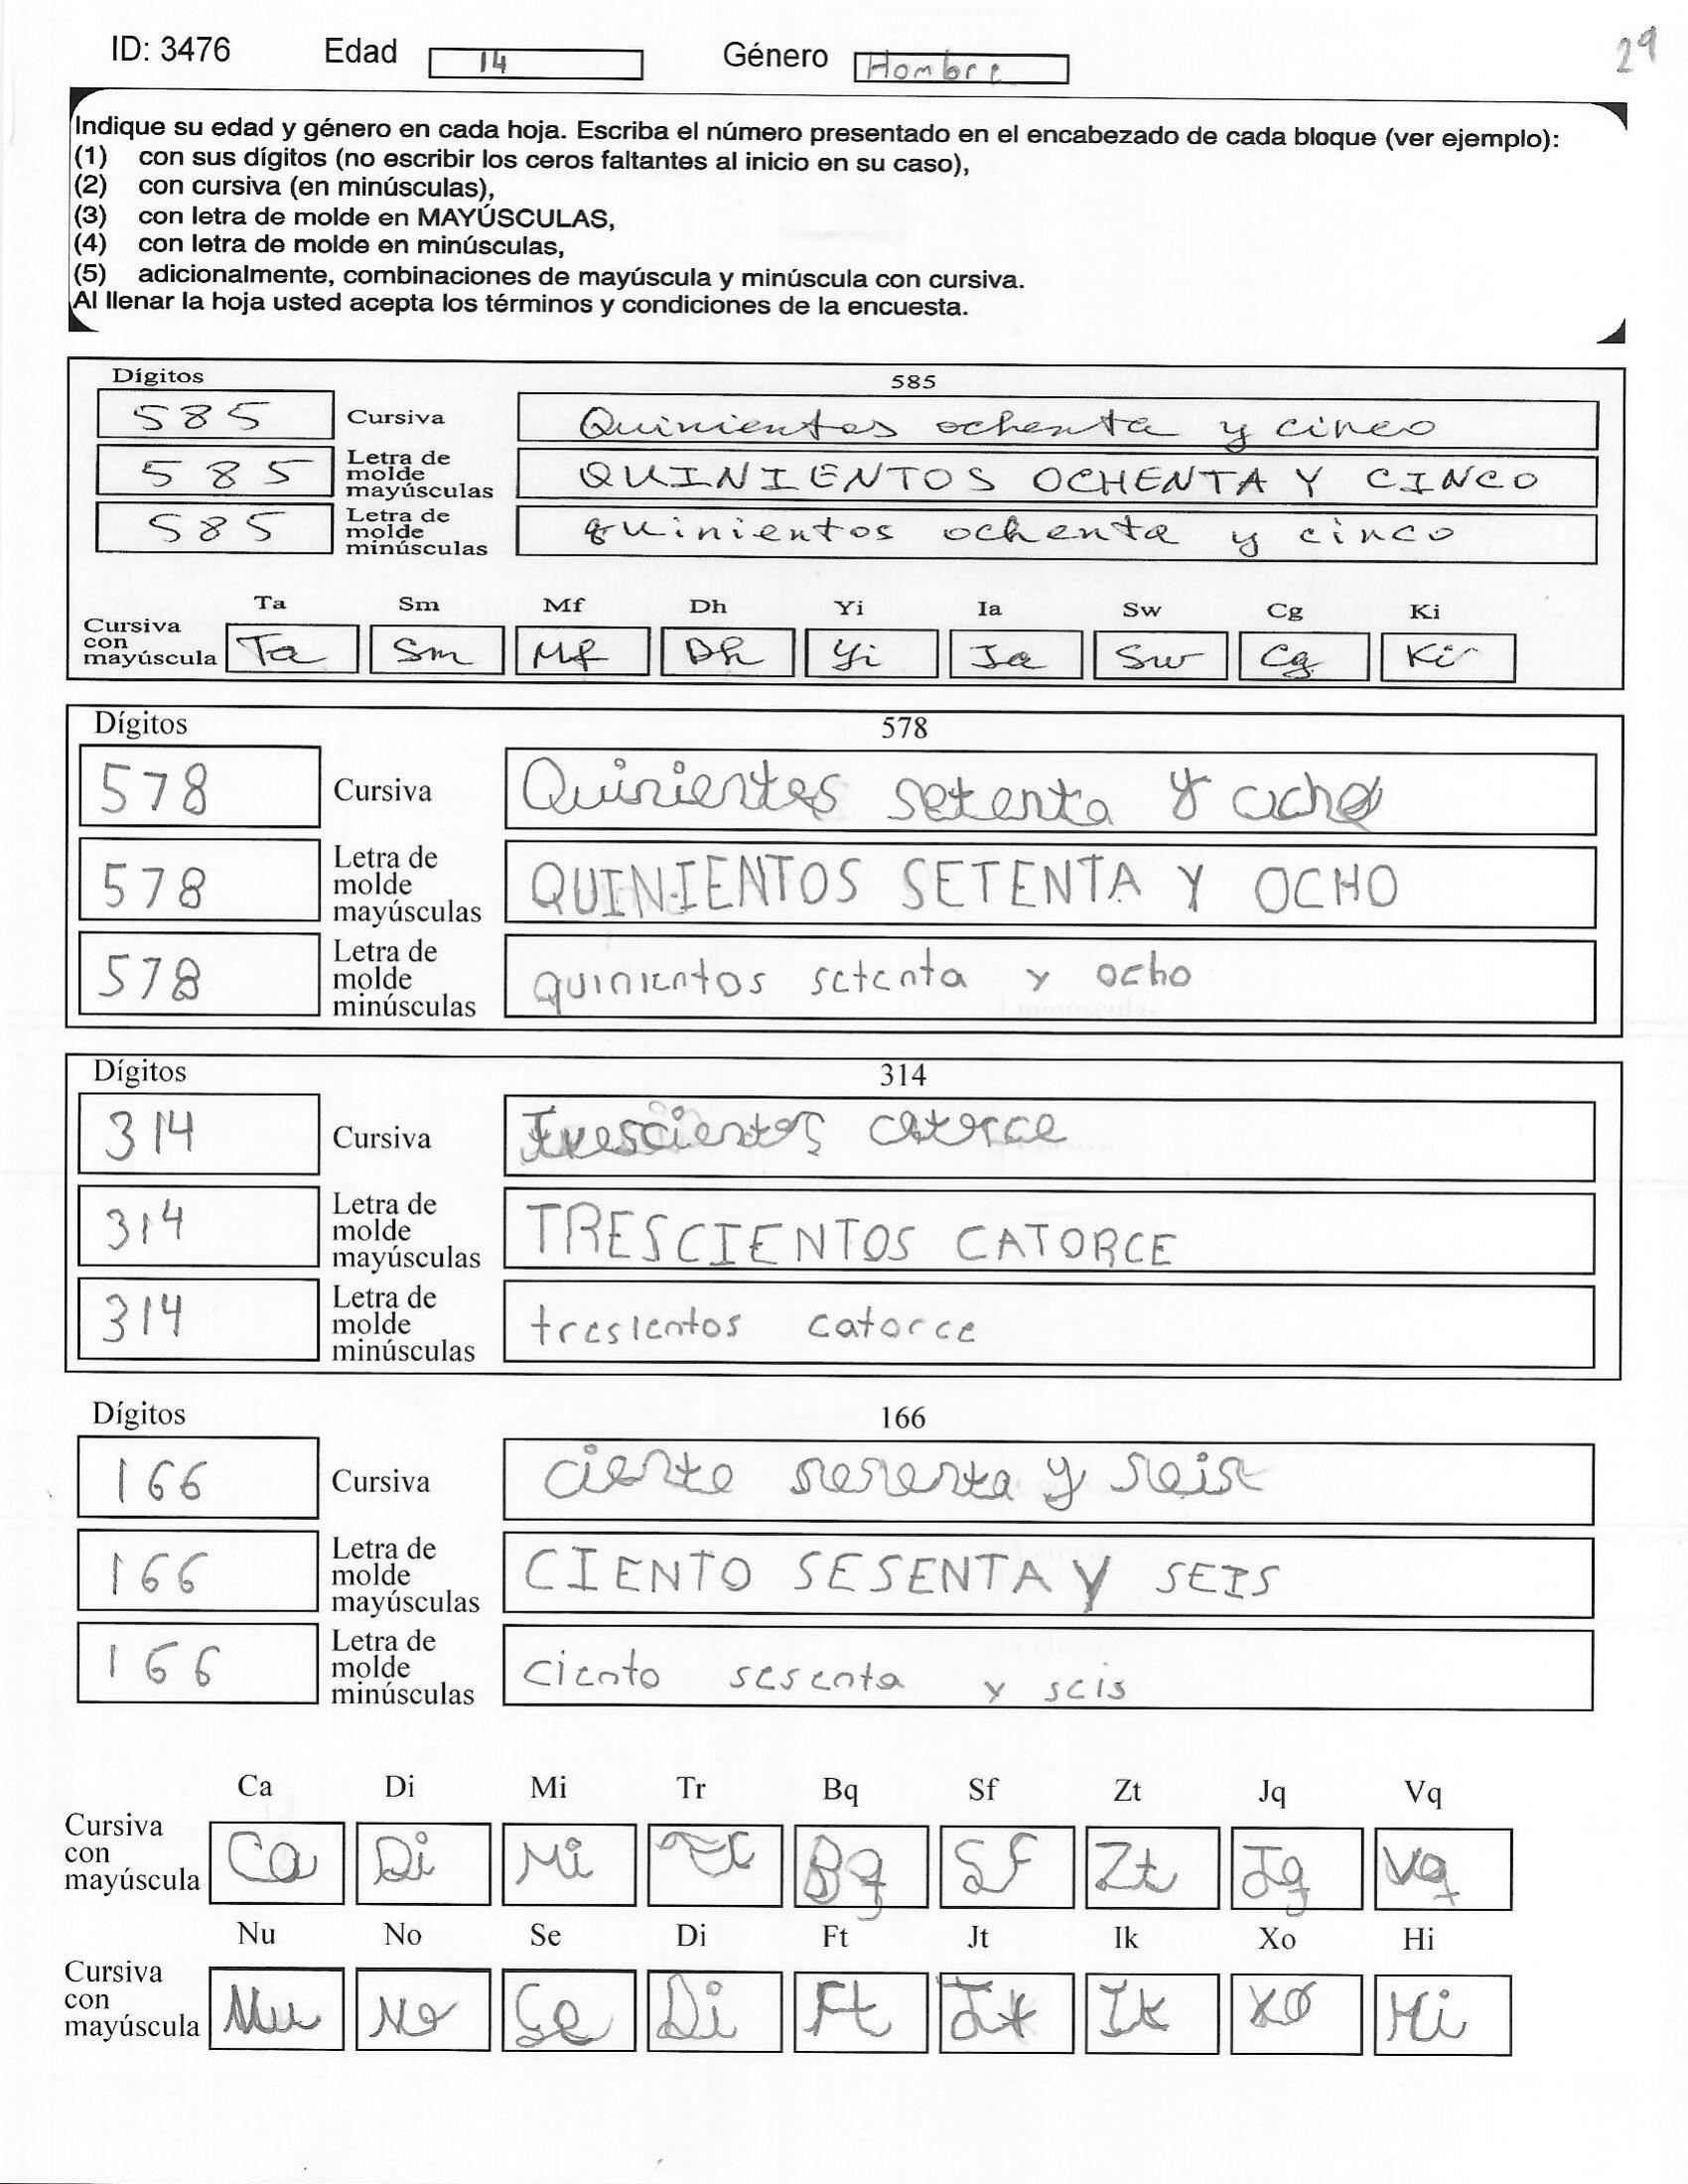 ID: 3476 Edad 14 Género Hombre 29
Indique su edad y género en cada hoja. Escriba el número presentado en el encabezado de cada bloque (ver ejemplo):
(1) con sus dígitos (no escribir los ceros faltantes al inicio en su caso),
(2) con cursiva (en minúsculas),
(3) con letra de molde en MAYÚSCULAS,
(4) con letra de molde en minúsculas,
(5) adicionalmente, combinaciones de mayúscula y minúscula con cursiva.
Al llenar la hoja usted acepta los términos y condiciones de la encuesta.
Dígitos 585
585 Cursiva Quinientos ochenta y cinco
585 Letra de molde mayúsculas QUINIENTOS OCHENTA Y CINCO
585 Letra de molde minúsculas quinientos ochenta y cinco
Ta Sm Mf Dh Yi Ia Sw Cg Ki
Cursiva con mayúscula Ta Sm Mf Dh Yi Ia Sw Cg Ki
Dígitos 578
578 Cursiva Quinientos setenta y ocho
578 Letra de molde mayúsculas QUINIENTOS SETENTA Y OCHO
578 Letra de molde minúsculas quinientos setenta y ocho
Dígitos 314
314 Cursiva Trescientos catorce
314 Letra de molde mayúsculas TRESCIENTOS CATORCE
314 Letra de molde minúsculas tresientos catorce
Dígitos 166
166 Cursiva ciento sesenta y seis
166 Letra de molde mayúsculas CIENTO SESENTA Y SEIS
166 Letra de molde minúsculas ciento sesenta y seis
Ca Di Mi Tr Bq Sf Zt Jq Vq
Cursiva con mayúscula Ca Di Mi Tr Bq Sf Zt Jq Vq
Nu No Se Di Ft Jt Ik Xo Hi
Cursiva con mayúscula Nu No Se Di Ft Jt Ik Xo Hi